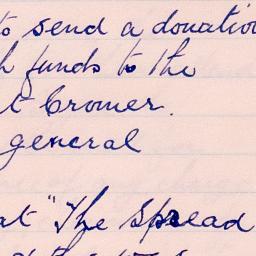 to send a donation
funds to the
at Cromer.
general
at "The Spread